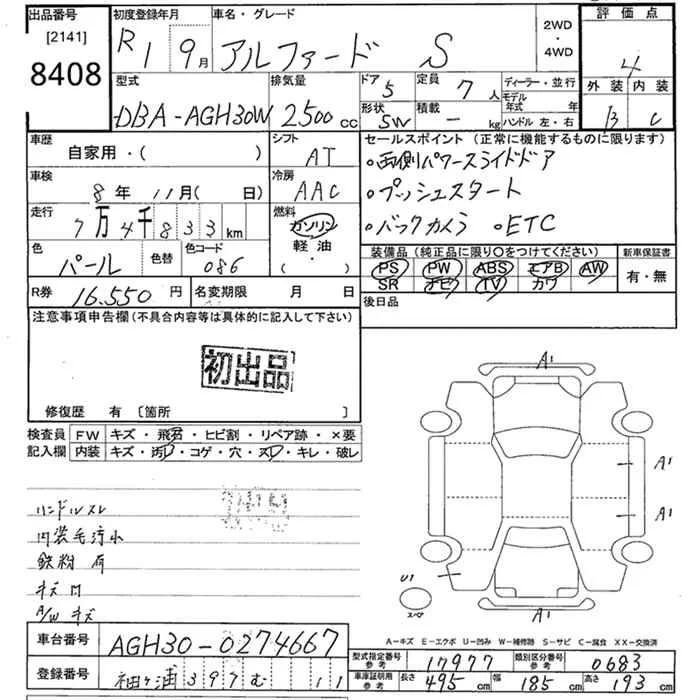 出品番号 初度登録年月 車名・グレード 2WD・4WD 評価点
[2141] 8408 R1 9月 アルファード S 4
型式 排気量 ドア 5 定員 7人 ディーラー・並行 外装 内装
DBA-AGH30W 2500cc 形状 5W 積載 - kg モデル年式 年 ハンドル 左・右 B C
車歴 シフト セールスポイント (正常に機能するものに限ります)
自家用・( ) AT 。両側パワースライドドア
車検 冷房 。プッシュスタート
8年 11月( 日) AAC 。バックカメラ 。ETC
走行 7万4千833km 燃料 ガソリン
軽油・( ・ )
色 パール 色替 色コード 086 装備品 (純正品に限り〇をつけてください) 新車保証書
PS PW ABS エアB AW 有・無
SR ナビ TV カワ
R券 16,550円 名変期限 月 日 後日品
注意事項申告欄 (不具合内容等は具体的に記入して下さい)
初出品
修復歴 有 [箇所 ]
検査員 FW キズ・飛石・ヒビ割・リペア跡・×要
記入欄 内装 キズ・汚レ・コゲ・穴・スレ・キレ・破レ
ハンドルスレ
内装毛汚れ
鉄粉有
キズ凹
A/Wキズ
A1
A1
A1
U1
スペア
A1
A-キズ E-エクボ U-凹み W-補修跡 S-サビ C-腐食 XX-交換済
車台番号 AGH30-0274667
型式指定番号 参考 17977 類別区分番号 参考 0683
登録番号 袖ヶ浦 397 む 11
車庫証明用 参考 長さ 495cm 幅 185cm 高さ 193cm